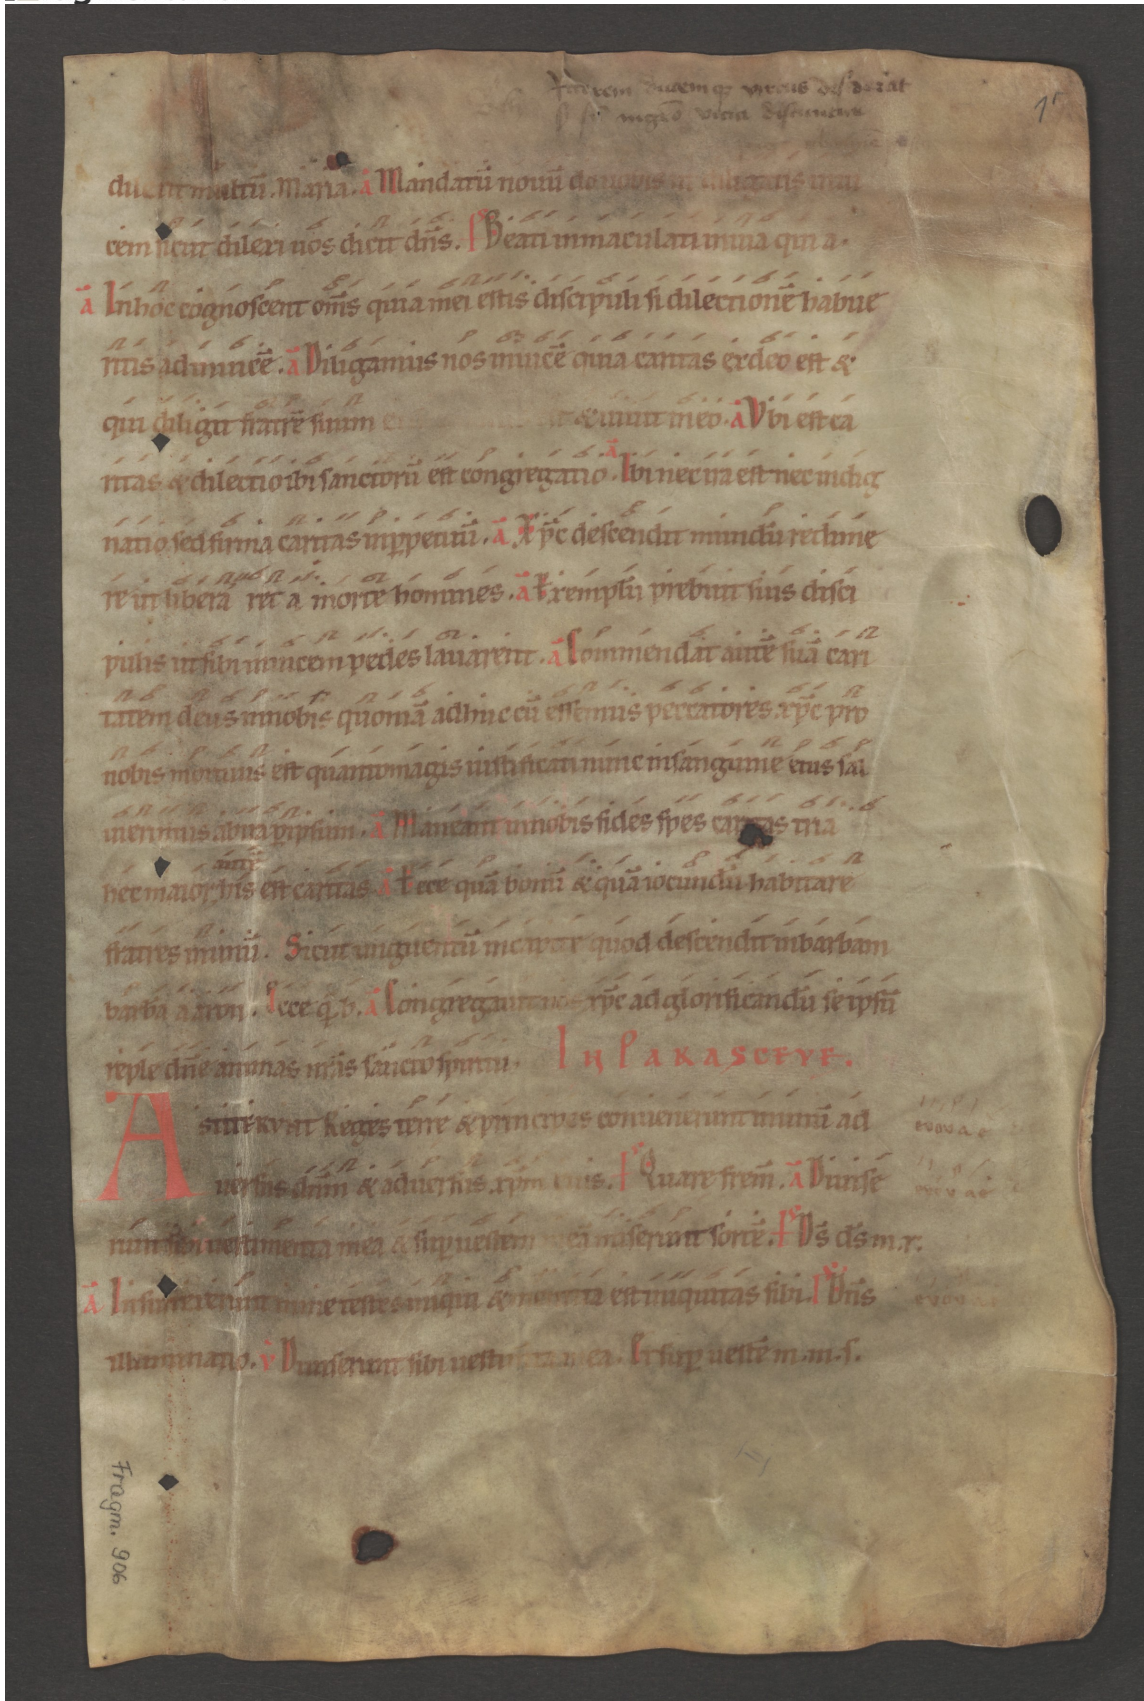 1r
dilexit multū. Maria. ā Mandatū nouū do uobis ut diligatis inui
cem sicut dilexi uos dicit dn̄s. Ps Beati inmaculati in uia qui a.
ā In hoc cognoscent om̄s quia mei estis discipuli si dilectionē habue
ritis adinuicē. ā Diligamus nos inuicē quia caritas ex deo est &
qui diligit fratrē suum & uiuit meo. ā Vbi est ca
ritas & dilectio ibi sanctorū est congregatio. ā Ibi nec ira est nec indig
natio sed firma caritas inꝑpetuū. ā Xp̄c descendit mundū redime
re ut liberaret a morte homines. ā Exemplū prebuit suis disci
pulis ut sibi inuicem pedes lauarent. ā Commendat autē suā cari
tatem deus in nobis quoniā adhuc cū essemus peccatores. xp̄c pro
nobis mortuus est quanto magis iustificati nunc in sanguine eius sal
ui erimus ab ira ꝑ ipsum. ā Maneant in nobis fides spes caritas tria
autē
hec maior his est caritas ā Ecce quā bonū & quā iocundū habitare
fratres in unū. Sicut unguentū in capite quod descendit in barbam
barbā aaron. Ecce q. b. ā Congregauit nos xp̄c ad glorificandū se ipsū
reple dn̄e animas nr̄as sancto spiritu. IN PARASCEVE.
ASTITERVNT Reges terre & principes conuenerunt in unū ad
uersus dn̄m & aduersus xp̄m eius. Ps Quare frem̄. ā Diuise euouae
runt sibi uestimenta mea & suꝑ uestem meā miserunt sortē. Ps Ds̄ ds̄ m. r.
ā Insurrexerunt in me testes iniqui & mentita est iniquitas sibi. Ps Dn̄s euouae
illuminatio. v Diuiserunt sibi uestimenta mea. Et suꝑ uestē m. m. s.
Fragm. 906